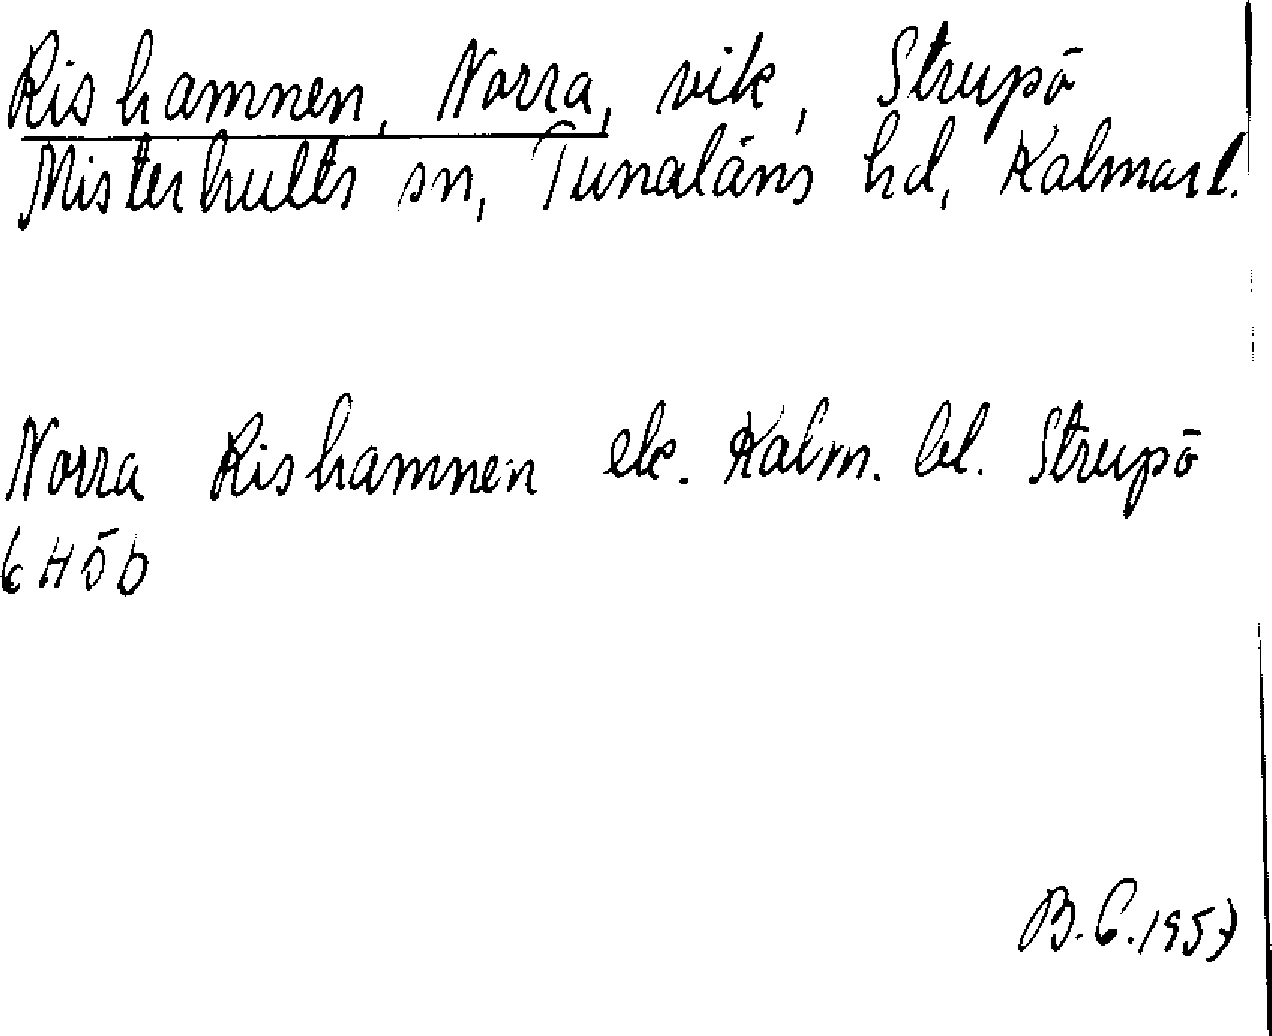 Rishamnen, Norra, vik, Strupö
Misterhults sn, Tunaläns hd, Kalmar l.
Norra Rishamnen ek. Kalm. bl. Strupö
6 H Ö b
B.G. 1957